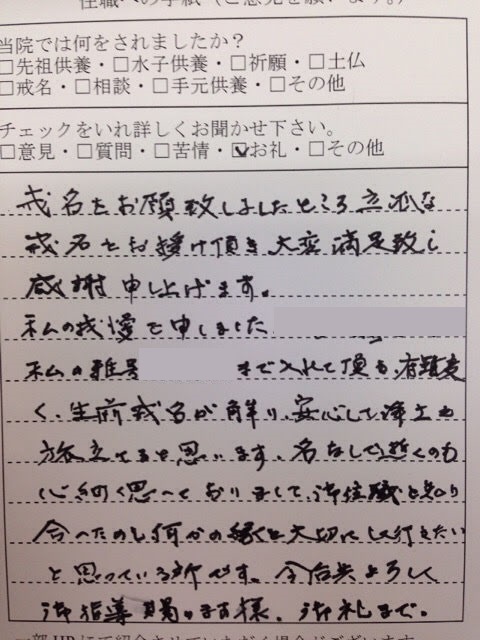 住職への手紙（ご意見を願います。）
当院では何をされましたか？
□先祖供養・□水子供養・□祈願・□土仏
□戒名・□相談・□手元供養・□その他
チェックをいれ詳しくお聞かせ下さい。
□意見・□質問・□苦情・☑お礼・□その他
戒名をお願致しましたところ立派な
戒名をお授け頂き大変満足致し
感謝申し上げます。
私の我儘で申しました
私の雅号 まで入れて頂き、有難
く、生前戒名が解り、安心して浄土へ
旅立てると思います。名なしで逝くのも
心細く思へておりまして、御住職と知り
合へたのも何かの縁と大切にして行きたい
と思っている所です。今后共よろしく
御指導賜ります様、御礼まで。